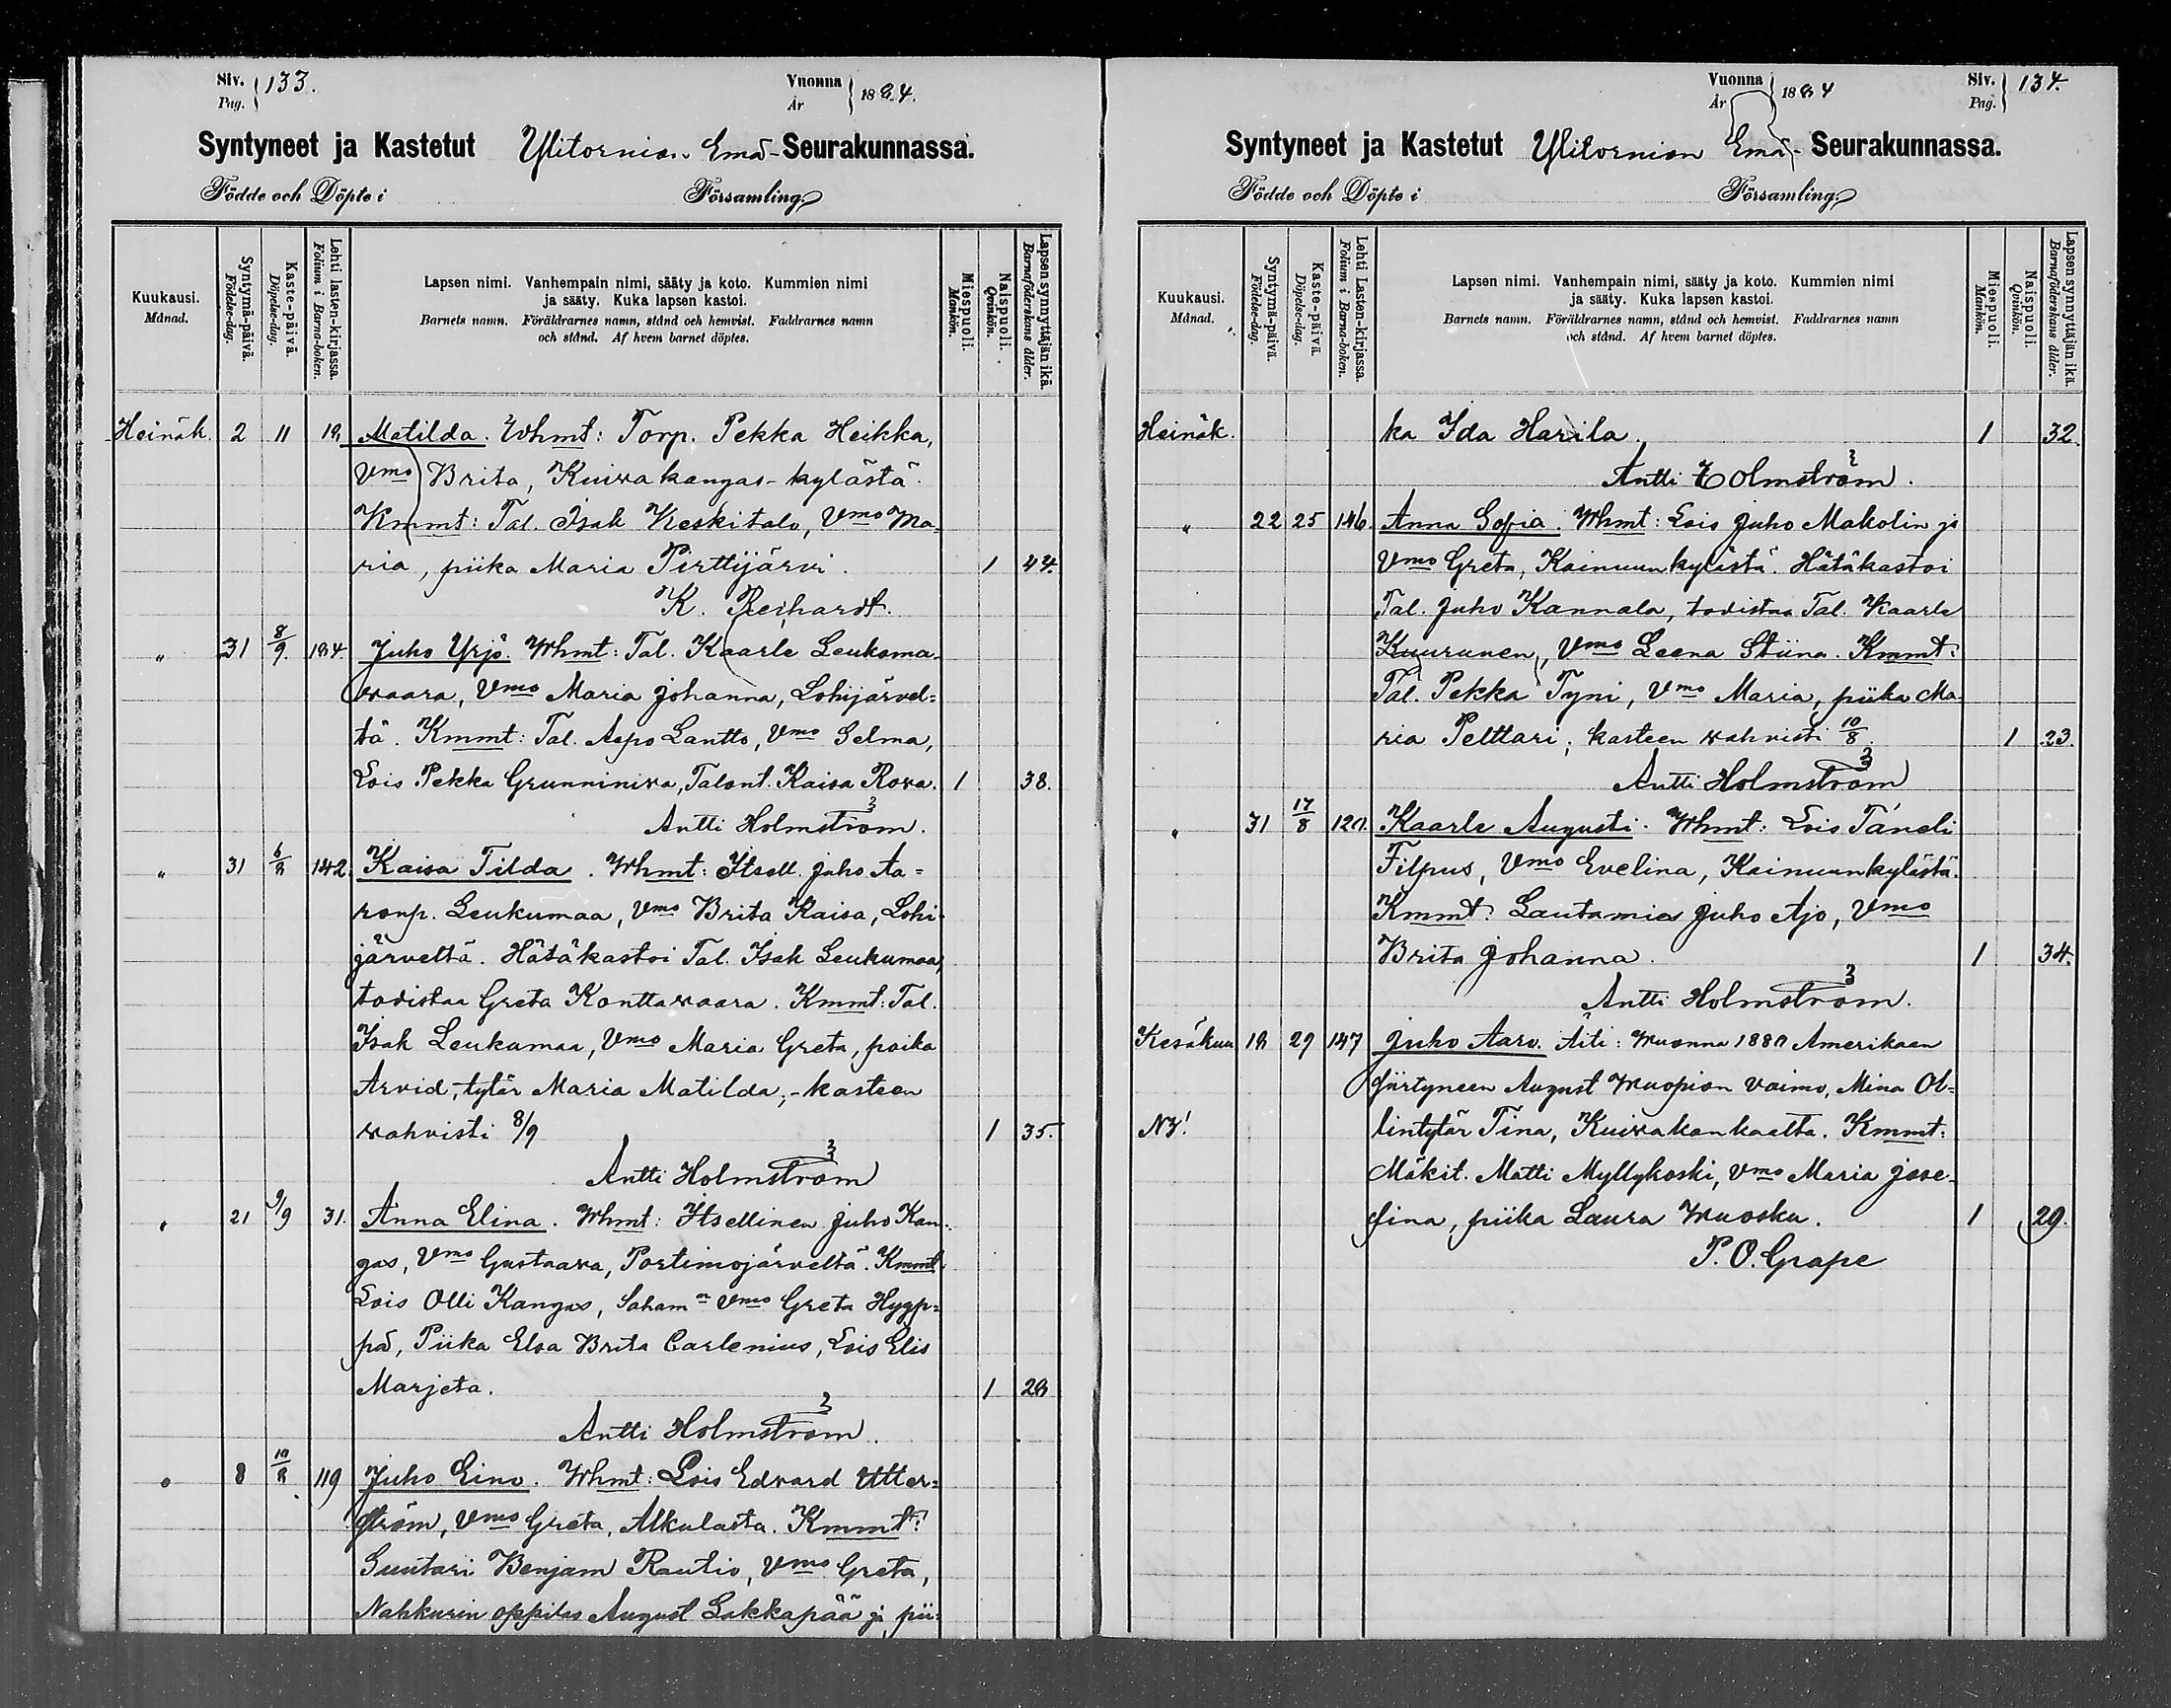 Siv. Pag. 133.
Vuonna År 1884.
Syntyneet ja Kastetut Ylitornion Emä-Seurakunnassa.
Födde och Döpte i Församling.
Kuukausi. Månad.
Syntymä-päivä. Födelse-dag.
Kaste-päivä. Döpelse-dag.
Lehti lasten-kirjassa. Folium i Barna-boken.
Lapsen nimi. Vanhempain nimi, sääty ja koto. Kummien nimi
ja sääty. Kuka lapsen kastoi.
Barnets namn. Föräldrarnes namn, stånd och hemvist. Faddrarnes namn
och stånd. Af hvem barnet döptes.
Miespuoli. Mankön.
Naispuoli. Qvinkön.
Lapsen synnyttäjän ikä. Barnaföderskans ålder.
Heinäk. 2 11 18 Matilda. Whmt: Torp. Pekka Heikka,
Vmo Brita, Kuiwakangas-kylästä.
Kmmt: Tal. Isak Keskitalo, Vmo Ma-
ria, piika Maria Pirttijärvi. 1 44.
K. Reihardt.
„ 31 8/9 184. Juho Yrjö. Whmt: Tal. Kaarle Leukoma-
waara, Vmo Maria Johanna, Lohijärvel-
tä. Kmmt: Tal. Aapo Lantto, Vmo Selma,
Lois Pekka Grunniniwa, Talont. Kaisa Rova. 1 38.
Antti Holmström.
„ 31 6/8 142. Kaisa Tilda. Whmt: Itsell. Juho Aa=
ronp. Leukumaa, Vmo Brita Kaisa, Lohi-
järveltä. Hätäkastoi Tal. Isak Leukumaa,
todistaa Greta Konttawaara. Kmmt: Tal.
Isak Leukumaa, Vmo Maria Greta, poika
Arvid, tytär Maria Matilda; - kasteen
wahvisti 8/9 1 35.
Antti Holmström
„ 21 9/9 31. Anna Elina. Whmt: Itsellinen Juho Kan-
gas, Vmo Gustaava, Portimojärveltä. Kmmt:
Lois Olli Kangas, Saham n Vmo Greta Hyyp-
pä, Piika Elsa Brita Carlenius, Lois Elis
Marjeta. 1 28
Antti Holmström.
„ 8 10/8 119 Juho Eino. Whmt: Lois Edvard Utter=
ström, Vmo Greta, Alkulasta. Kmmt:
Suutari Benjam Rautio, Vmo Greta,
Nahkurin oppilas August Lakkapää ja pii-
Vuonna År 1884
Siv. Pag. 134.
Syntyneet ja Kastetut Ylitornion Emä-Seurakunnassa.
Födde och Döpte i Församling.
Kuukausi. Månad.
Syntymä-päivä. Födelse-dag.
Kaste-päivä. Döpelse-dag.
Lehti Lasten-kirjassa. Folium i Barna-boken.
Lapsen nimi. Vanhempain nimi, sääty ja koto. Kummien nimi
ja sääty. Kuka lapsen kastoi.
Barnets namn. Föräldrarnes namn, stånd och hemvist. Faddrarnes namn
och stånd. Af hvem barnet döptes.
Miespuoli. Mankön.
Naispuoli. Qvinkön.
Lapsen synnyttäjän ikä. Barnaföderskans ålder.
Heinäk. ka Ida Harila. 1 32.
Antti Holmström.
„ 22 25 146 Anna Sofia. Whmt: Lois Juho Makolin ja
Vmo Greta, Kainuunkylästä. Hätäkastoi
Tal. Juho Kannala, todistaa Tal. Kaarle
Kuurunen, Vmo Leena Stiina. Kmmt:
Tal. Pekka Tyni, Vmo Maria, piika Ma-
ria Pelttari; kasteen wahvisti 10/8 1 23.
Antti Holmström
„ 31 17/8 120. Kaarle Augusti. Whmt: Lois Taneli
Filpus, Vmo Evelina, Kainuunkylästä.
Kmmt: Lautamies Juho Ajo, Vmo
Brita Johanna. 1 34.
Antti Holmström.
Kesäkuu 18 29 147 Juho Aaro. Äiti: Wuonna 1880 Amerikaan
siirtyneen August Wuopion vaimo, Mina Ol-
lintytär Tina, Kuiwakankaalta. Kmmt:
NB!
Mäkit. Matti Myllykoski, Vmo Maria Jose-
fina, piika Laura Wuosku. 1 29.
P. O. Grape